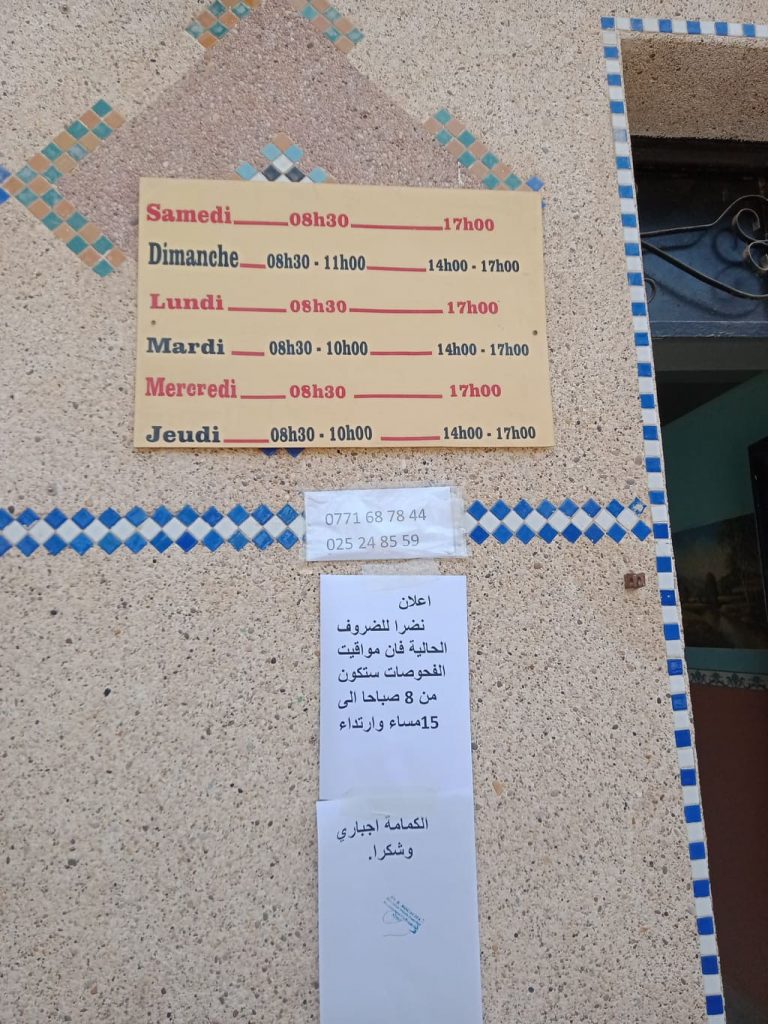 Samedi 08h30 17h00
Dimanche 08h30 - 11h00 14h00 - 17h00
Lundi 08h30 17h00
Mardi 08h30 - 10h00 14h00 - 17h00
Mercredi 08h30 17h00
Jeudi 08h30 - 10h00 14h00 - 17h00
0771 68 78 44
025 24 85 59
اعلان
نضرا للضروف
الحالية فان مواقيت
الفحوصات ستكون
من 8 صباحا الى
15مساء وارتداء
الكمامة اجباري
وشكرا.